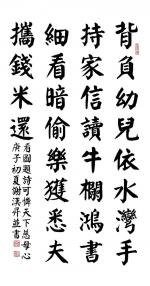 背負幼兒依水灣手
持家信讀牛欄鴻書
細看暗偷樂獲悉夫
攜錢米還
看圖題詩可憐天下慈母心
庚子初夏謝漢昇並書